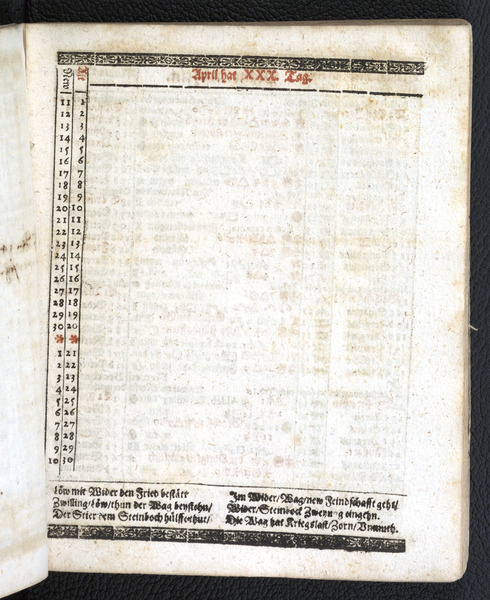 April hat XXX. Tag.
New Alt
11 1
12 2
13 3
14 4
15 5
16 6
17 7
18 8
19 9
20 10
21 11
22 12
23 13
24 14
25 15
26 16
27 17
28 18
29 19
30 20
* *
1 21
2 22
3 23
4 24
5 25
6 26
7 27
8 28
9 29
10 30
Löw mit Wider den Fried bestätt
Zwilling/Löw/thun der Wag beystehn/
Der Stier dem Steinboch hülff thut/
Im Wider/Wag/new Feindschafft geht/
Wider/Steinbock Zweyung eingehn.
Die Wag hat Kriegslast/Zorn/Vnmuth.